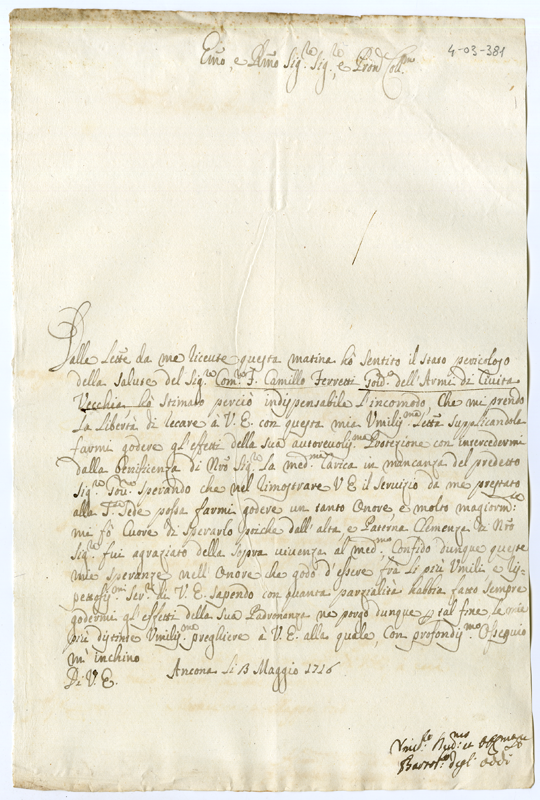 4-03-381
Emo, e Rmo Sig.re Sig.re, e Pron Coll.mo
Dalle lettre da me riceute questa matina hò sentito il stato pericoloso
della salute del Sig.r Com.r F. Camillo Ferretti Gov.e dell'Armi di Ciuita
Vecchia hò stimato perciò indispensabile l'incomodo, che mi prendo
la libertà di recare à V. E. con questa mia Vmiliss.ma lettra supplicandola
farmi godere gl'effetti della sua autorevoliss.ma Protezione con intercedermi
dalla benificienza di Nro Sig.re la med.ma Carica in mancanza del predetto
Sig.re Sperando che nel rimostrare V E il Servizio da me prestato
alla S.ta Sede possa farmi godere un tanto Onore e molto magiorm.te
mi fò Cuore di sperarlo poiche dall'alta e Paterna Clemenza di Nro
Sig.re fui agraziato della sopra vivenza al med.mo Confido dunque queste
mie speranze nell'Onore che godo d'essere frà li più Vmili e ris-
pettosiss.mi Ser.ri di V. E. sapendo con quanta parzialità habbia fatto sempre
godermi gl'effetti della sua Padronanza ne porgo dunque p tal fine le mie
più distinte Vmiliss.me pregliere à V. E. alla quale, con profondiss.mo Ossequio
m'inchino
Di V. E. Ancona li 13 Maggio 1716
Vmil.mo
degl' Oddi